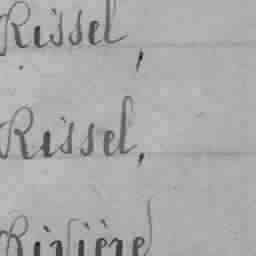 Rissel,
Rissel,
Rivière